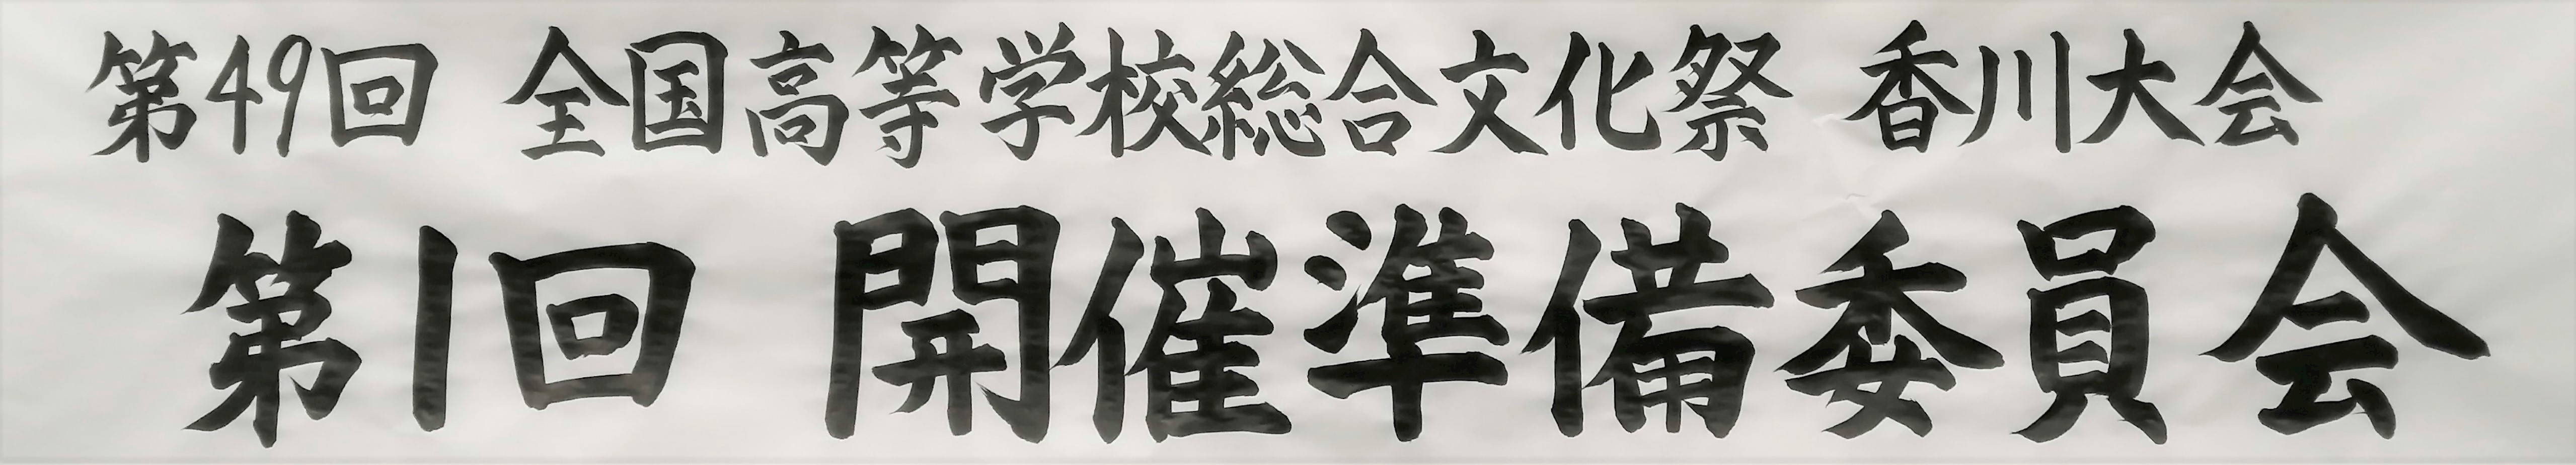 第49回 全国高等学校総合文化祭 香川大会
第1回 開催準備委員会